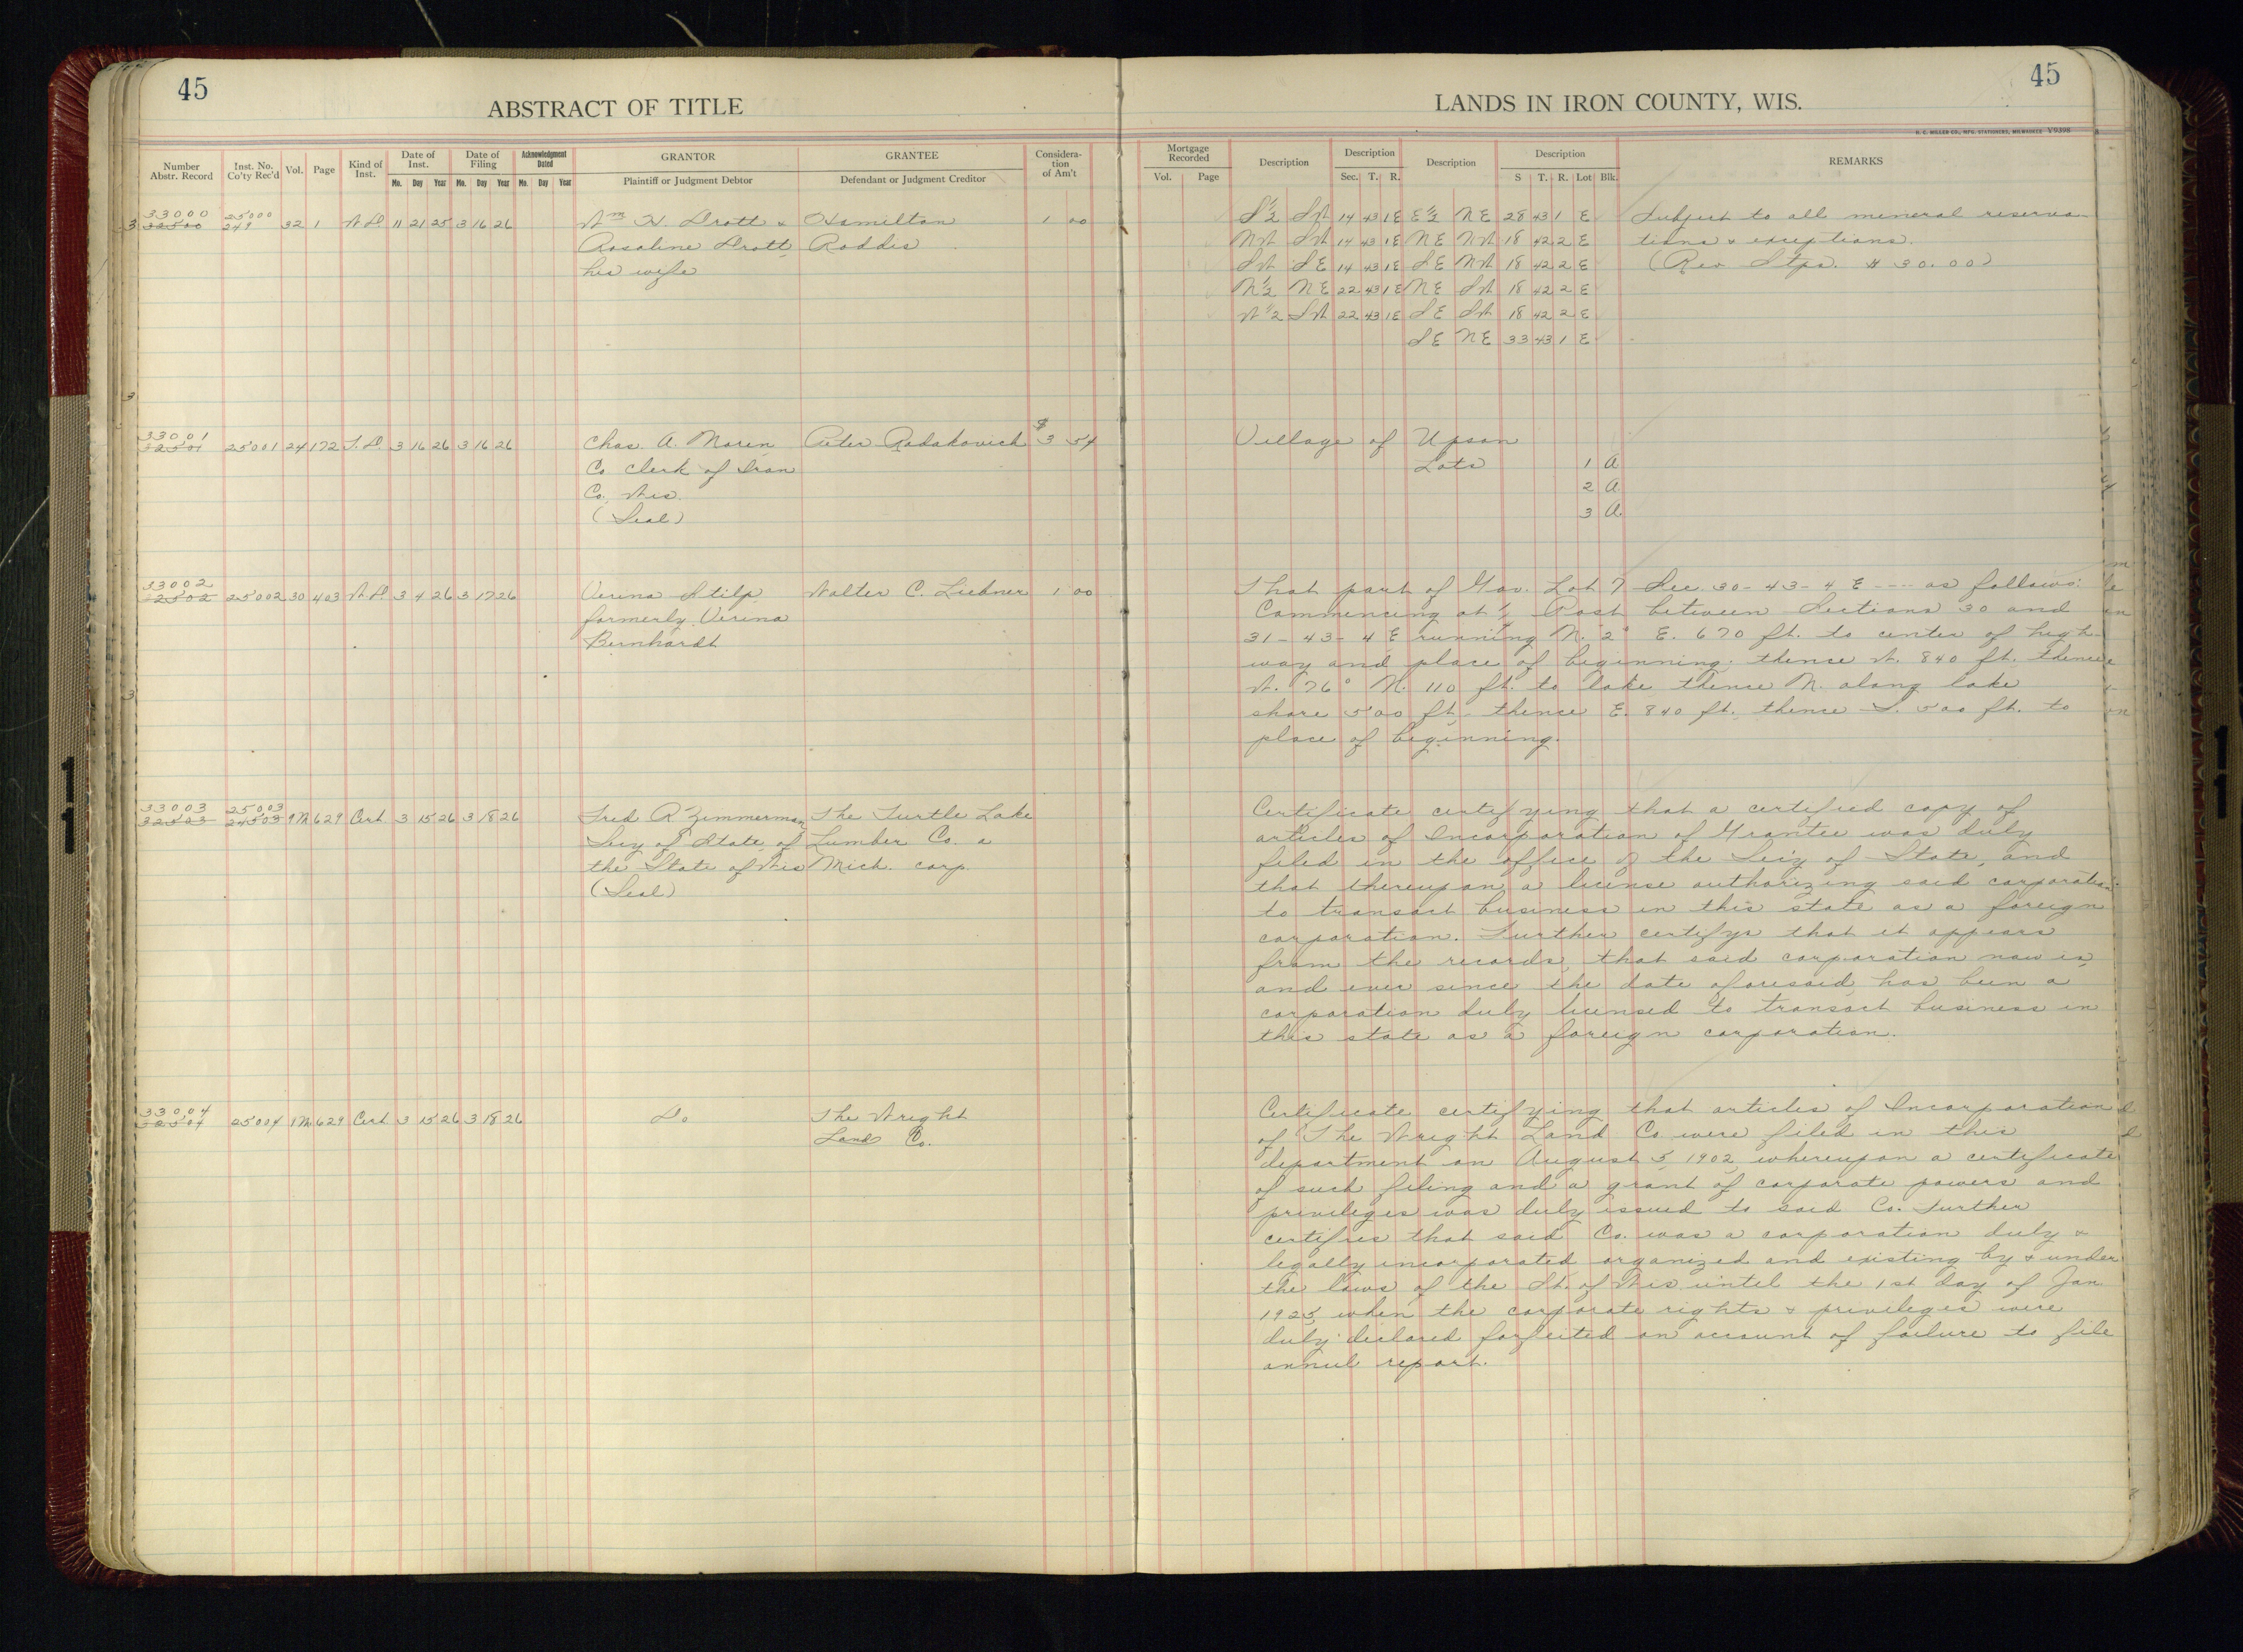 45
45
ABSTRACT OF TITLE
LANDS IN IRON COUNTY, WIS.
H. C. MILLER CO., MFG. STATIONERS, MILWAUKEE V9398
Number Abstr. Record | Inst. No. Co'ty Rec'd | Vol. | Page | Kind of Inst. | Date of Inst. Mo. Day Year | Date of Filing Mo. Day Year | Acknowledgment Dated Mo. Day Year | GRANTOR Plaintiff or Judgment Debtor | GRANTEE Defendant or Judgment Creditor | Consideration of Am't
Mortgage Recorded Vol. Page | Description | Description Sec. T. R. | Description | Description S T. R. Lot Blk. | REMARKS
33000 25000
32500 249 32 1 W.D. 11 21 25 3 16 26 Wm H. Drott & Hamilton 1 00
Rosaline Drott, Roddis
his wife
S½ SW 14 43 1E E½ NE 28 43 1 E Subject to all meneral reserva-
NW SW 14 43 1E NE NW 18 42 2 E tions & exceptions.
SW SE 14 43 1E SE NW 18 42 2 E (Rev Stps. $30.00)
N½ NE 22 43 1E NE SW 18 42 2 E
W½ SW 22 43 1E SE SW 18 42 2 E
SE NE 33 43 1 E
33001
32501 25001 24 172 T.D. 3 16 26 3 16 26 Chas. A. Noren Peter Radakovich $3 54
Co Clerk of Iron
Co. Wis.
(Seal)
Village of Upson
Lots 1 A
2 A
3 A
33002
32502 25002 30 403 W.D. 3 4 26 3 17 26 Verina Stilp Walter C. Liebner 1 00
formerly Verina
Bernhardt
That part of Gov. Lot 7 Sec. 30-43-4 E ---- as follows:
Commencing at ¼ Post between Sections 30 and
31-43-4 E running N. 2° E. 670 ft. to center of high-
way and place of beginning; thence W. 840 ft. thence
W. 76° N. 110 ft. to lake thence N. along lake
shore 500 ft. thence E. 840 ft. thence S. 500 ft. to
place of beginning.
33003 25003
32503 24503 9M 629 Cert 3 15 26 3 18 26 Fred R Zimmerman The Turtle Lake
Secy of State of Lumber Co. a
the State of Wis Mich. corp.
(Seal)
Certificate certifying that a certified copy of
articles of Incorporation of Grantee was duly
filed in the office of the Sec'y of State, and
that thereupon a license authorizing said corporation
to transact business in this state as a foreign
corporation. Further certifys that it appears
from the records, that said corporation now is,
and ever since the date aforesaid, has been a
corporation duly licensed to transact business in
this state as a foreign corporation.
33004
32504 25004 9M 629 Cert 3 15 26 3 18 26 Do The Wright
Land Co.
Certificate certifying that articles of Incorporation
of The Wright Land Co were filed in this
department on August 5, 1902, whereupon a certificate
of such filing and a grant of corporate powers and
privileges was duly issued to said Co. Further
certifies that said Co. was a corporation duly &
legally incorporated organized and existing by & under
the laws of the St. of Wis. until the 1st day of Jan
1925, when the corporate rights & privileges were
duly declared forfeited on account of failure to file
annul report.